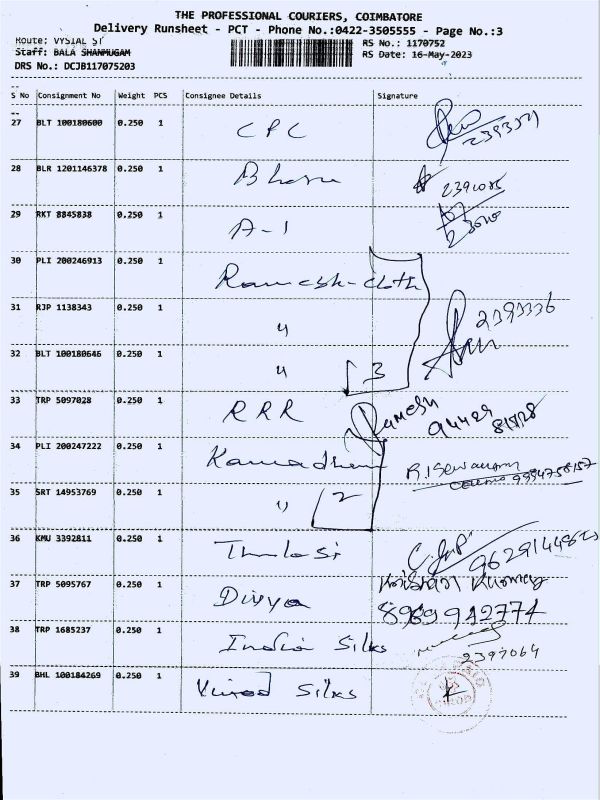 THE PROFESSIONAL COURIERS, COIMBATORE
Delivery Runsheet - PCT - Phone No.:0422-3505555 - Page No.:3
Route: VYSIAL ST
RS No.: 1170752
Staff: BALA SHANMUGAM
RS Date: 16-May-2023
DRS No.: DCJB117075203
S No Consignment No Weight PCS Consignee Details Signature
27 BLT 100180600 0.250 1 CPC
28 BLR 1201146378 0.250 1
29 RKT 8845838 0.250 1 A-1
30 PLI 200246913 0.250 1 Ramesh-cloth
31 RJP 1138343 0.250 1 "
2393336
32 BLT 100180646 0.250 1 " 3
33 TRP 5097028 0.250 1 RRR Ramesh
94429
34 PLI 200247222 0.250 1 Kamadhenu
35 SRT 14953769 0.250 1 " 2
36 KMU 3392811 0.250 1 Thulasi
37 TRP 5095767 0.250 1 Divya
8969942774
38 TRP 1685237 0.250 1 India Silks
2397064
39 BHL 100184269 0.250 1 Vinod Silks